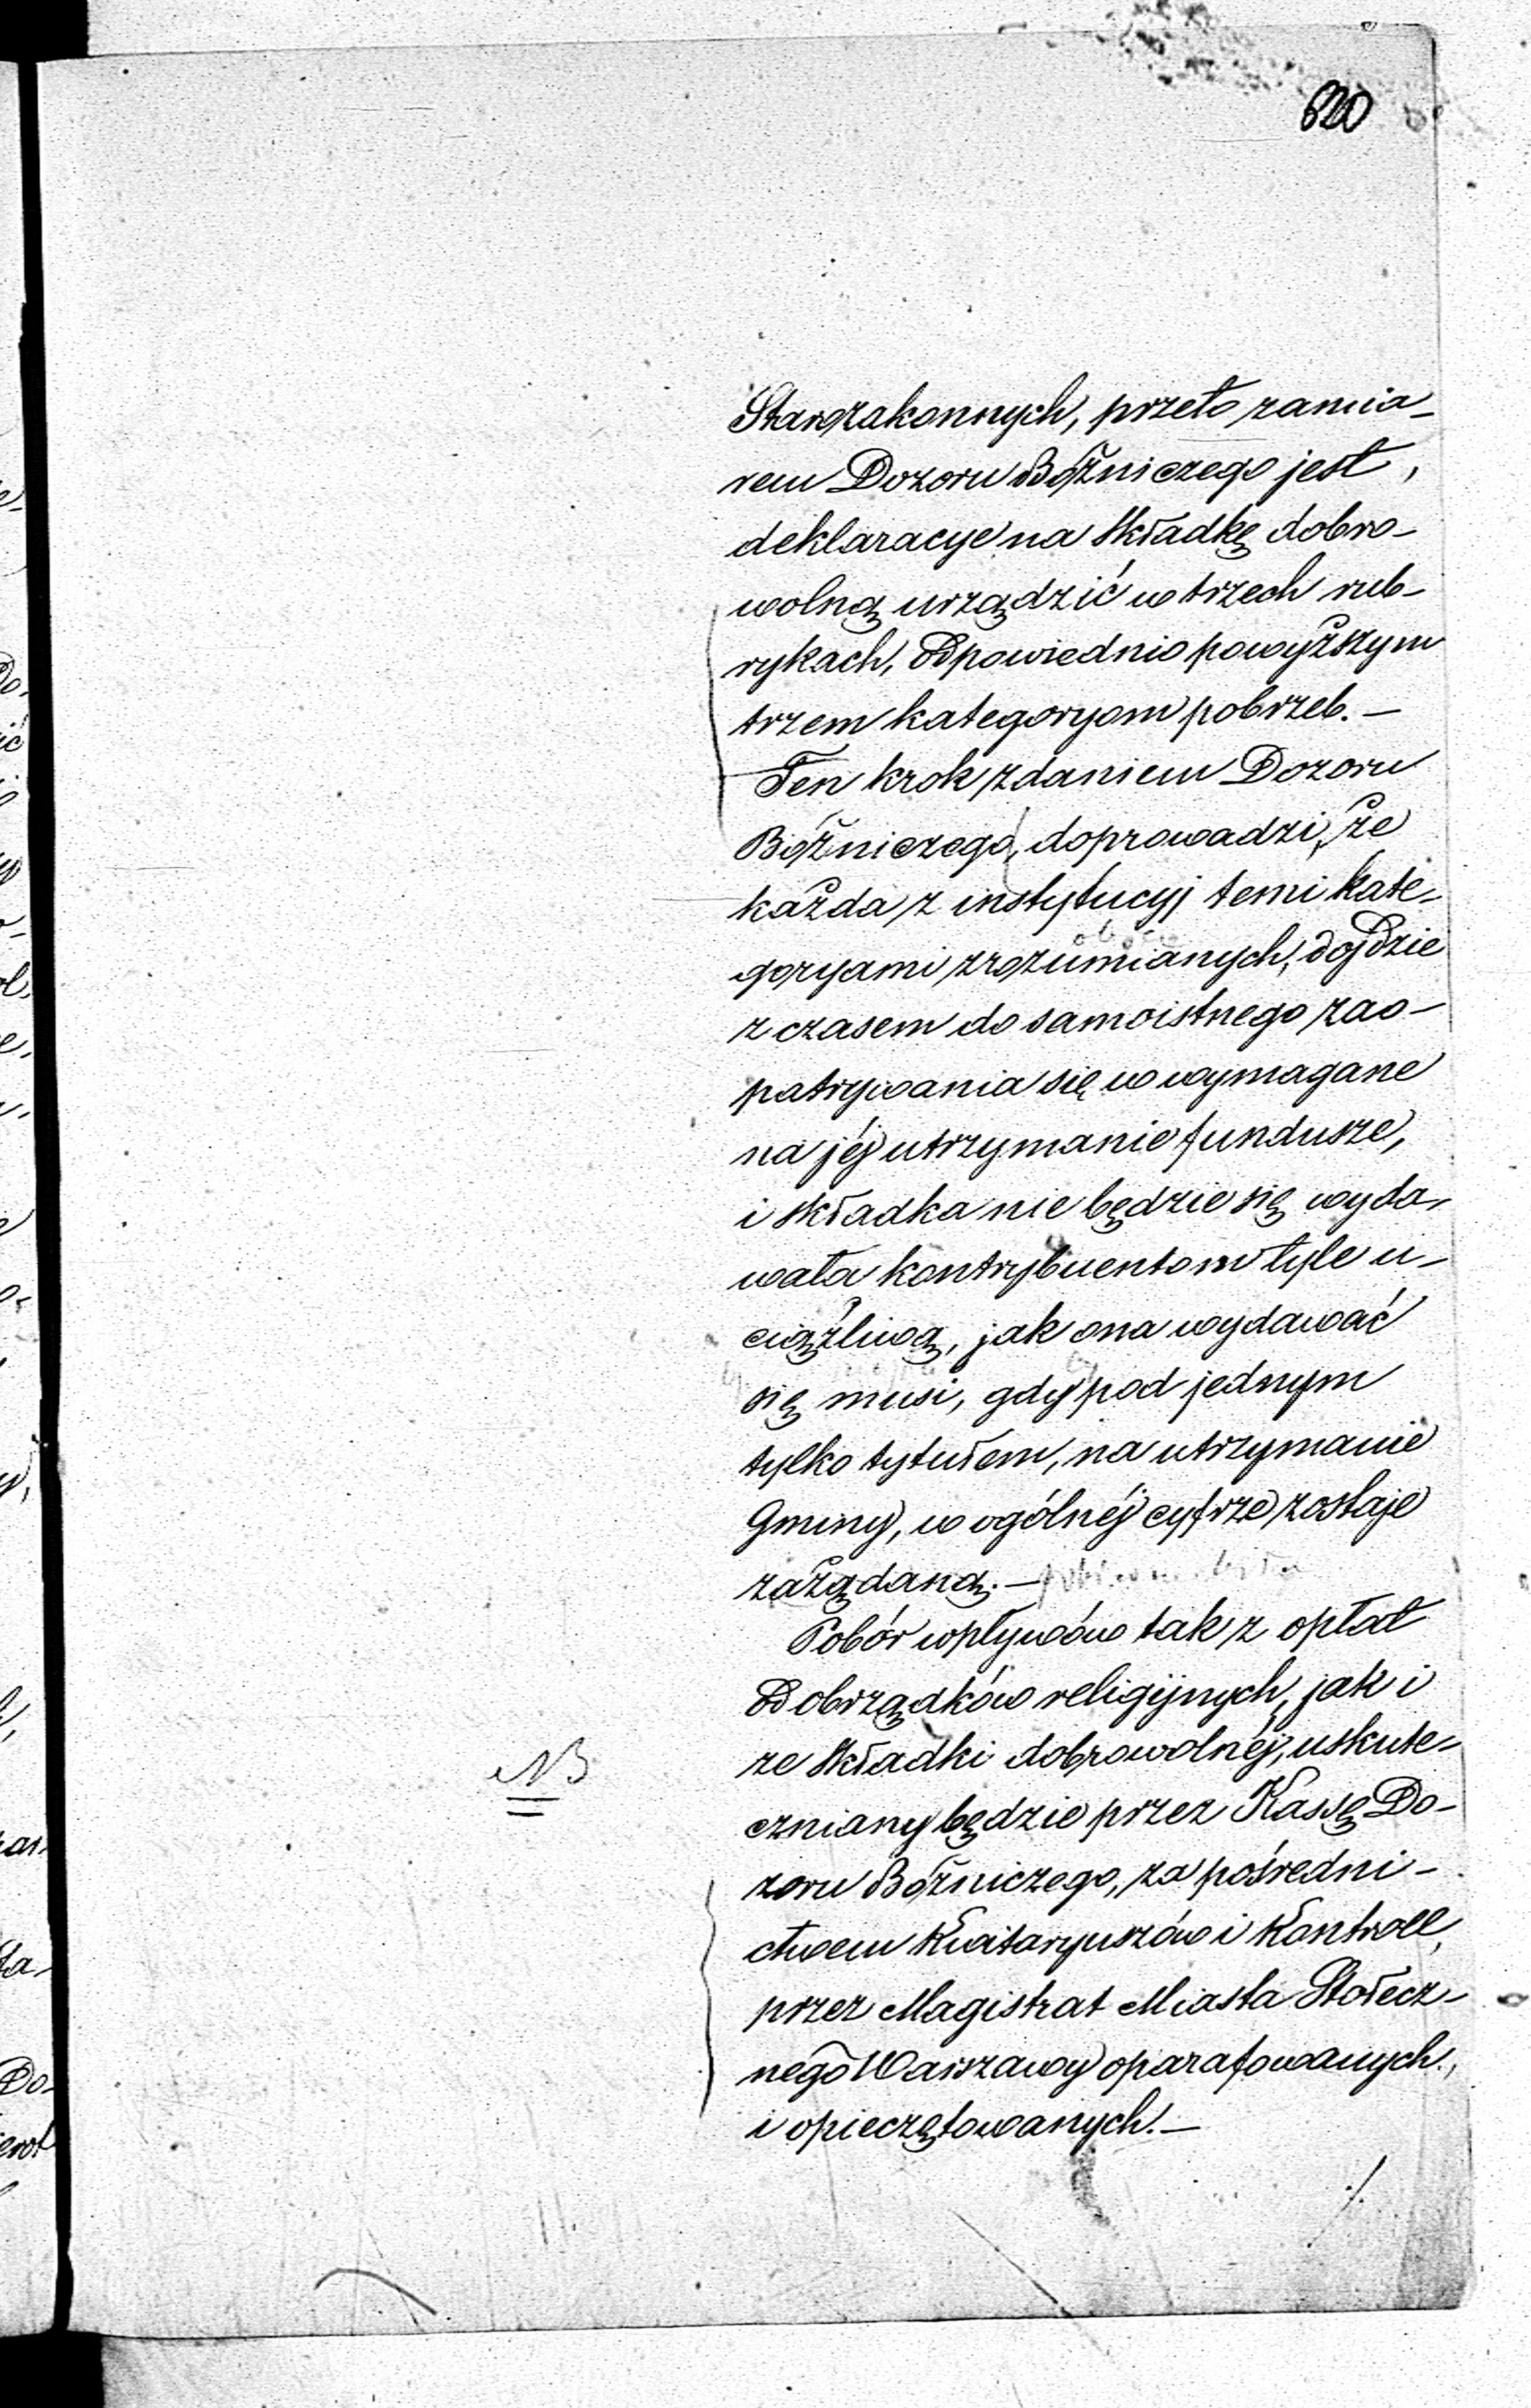 620
Starozakonnych, przeto zamia-
rem Dozoru Bóżniczego jest,
deklaracye na składkę dobro-
wolną urządzić w trzech rub-
rykach, odpowiednio powyższym
trzem kategoryom potrzeb. —
Ten krok zdaniem Dozoru
Bóżniczego, doprowadzi, że
każda z instytucyj temi kate-
goryami zrozumianych, dojdzie
z czasem do samoistnego zao-
patrywania się w wymagane
na jéj utrzymanie fundusze,
i składka nie będzie się wyda-
wała kontrybuentom tyle u-
ciążliwą, jak ona wydawać
się musi, gdy pod jednym
tylko tytułem, na utrzymanie
Gminy, w ogólnéj cyfrze zostaje
zażądaną. —
Pobór wpływów tak z opłat
od obrządków religijnych, jak i
ze składki dobrowolnéj, uskute-
czniany będzie przez Kassę Do-
NB
zoru Bóżniczego, za pośredni-
ctwem Kwitaryuszów i Kontroll,
przez Magistrat Miasta Stołecz-
nego Warszawy oparafowanych,
i opieczętowanych. —
./.